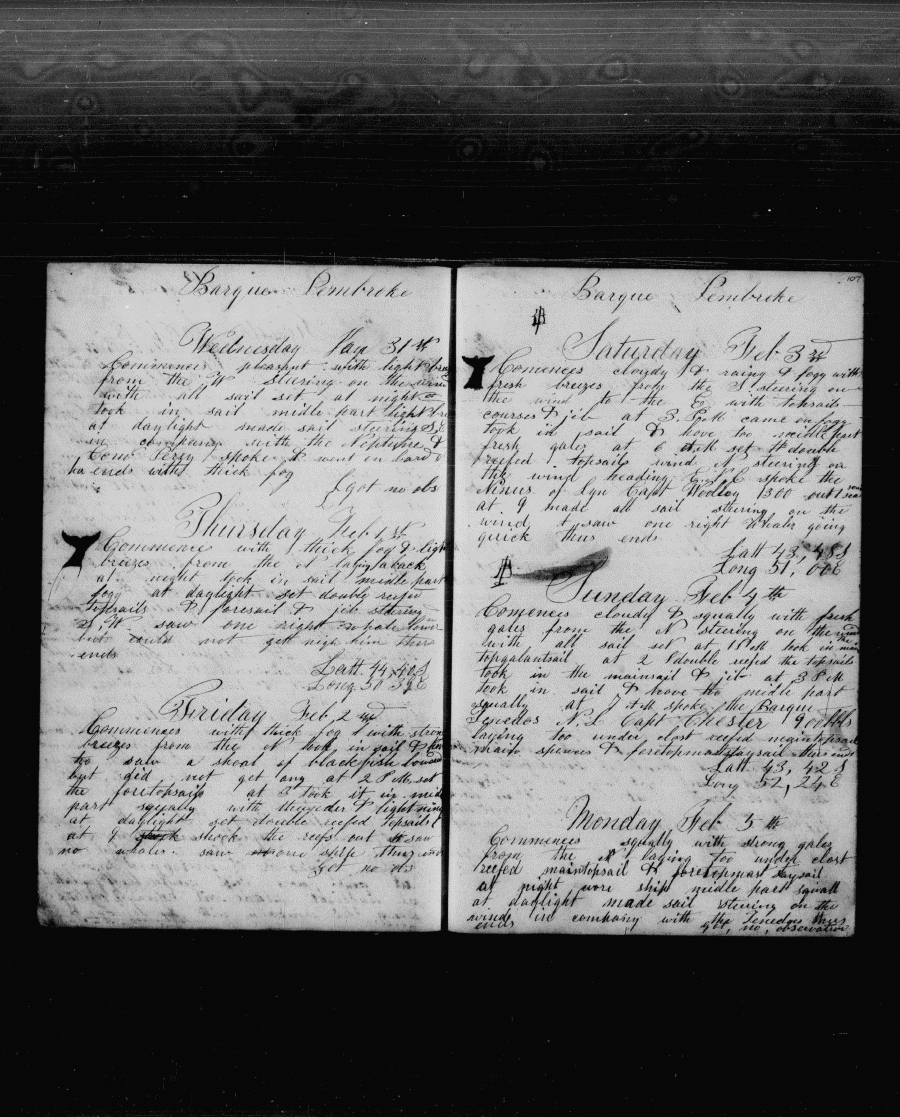 Barque Pembroke
Wednesday Jan 31st
Comences pleasant with light
from the W steering on the wind
with all sail set at night
took in sail midle part light
at daylight made sail steering
in company with the Neptune &
Com Perry spoke & went on bard
ha ends with thick fog
I got no obs
Thursday Feb 1st
Commence with thick fog & light
breezes from the N laying aback
at night took in sail midle part
fog at daylight set double reefd
topsails & foresail & jib steering
S W saw one right whale
but could not gett nigh him thus
ends
Latt 44,40 S
Long 50 39 E
Friday Feb 2nd
Commences with thick fog & with strong
breezes from the N took in sail &
too saw a shoal of blackfish
but did not get any at 2 P M set
the foretopsail at 3 took it in midle
part squally with thunder & lightning
at daylight set double reefed topsails
at 9 shook the reefs out saw
no whales saw one ship
got no obs
107
Barque Pembroke
Saturday Feb 3rd
Comences cloudy & raing & fogy with
fresh breezes from the N steering on
the wind to the E with topsails
courses & jib at 3 P M came on
took in sail & hove too midle part
fresh gales at 6 A M set double
reefed topsails wind N steering on
the wind heading E.S.E spoke the
Ninus of Lyn Capt 1300
at 9 made all sail steering on the
wind & saw one right whale going
qerick thus ends
Latt 43, 48 S
Long 51, 00 E
Sunday Feb 4th
Comences cloudy & squally with fresh
gales from the N steering on the wind
with all sail set at 1 P M took in main
topgalantsail at 2 double reefed the topsails
took in the mainsail & jib at 3 P M
took in sail & hove too midle part
squally at A M spoke the Barque
Tenedos N L Capt Chester 900 bbls
laying too under clost reefed
main spencer & foretopmaststaysail thus ends
Latt 43, 42 S
Long 52, 24 E
Monday Feb 5th
Commences squally with strong gales
from the N laying too under clost
reefed maintopsail & foretopmast staysail
at night wore ship midle part squall
at daylight made sail steering on the
wind in company with the Tenedos thus
ends got no observation